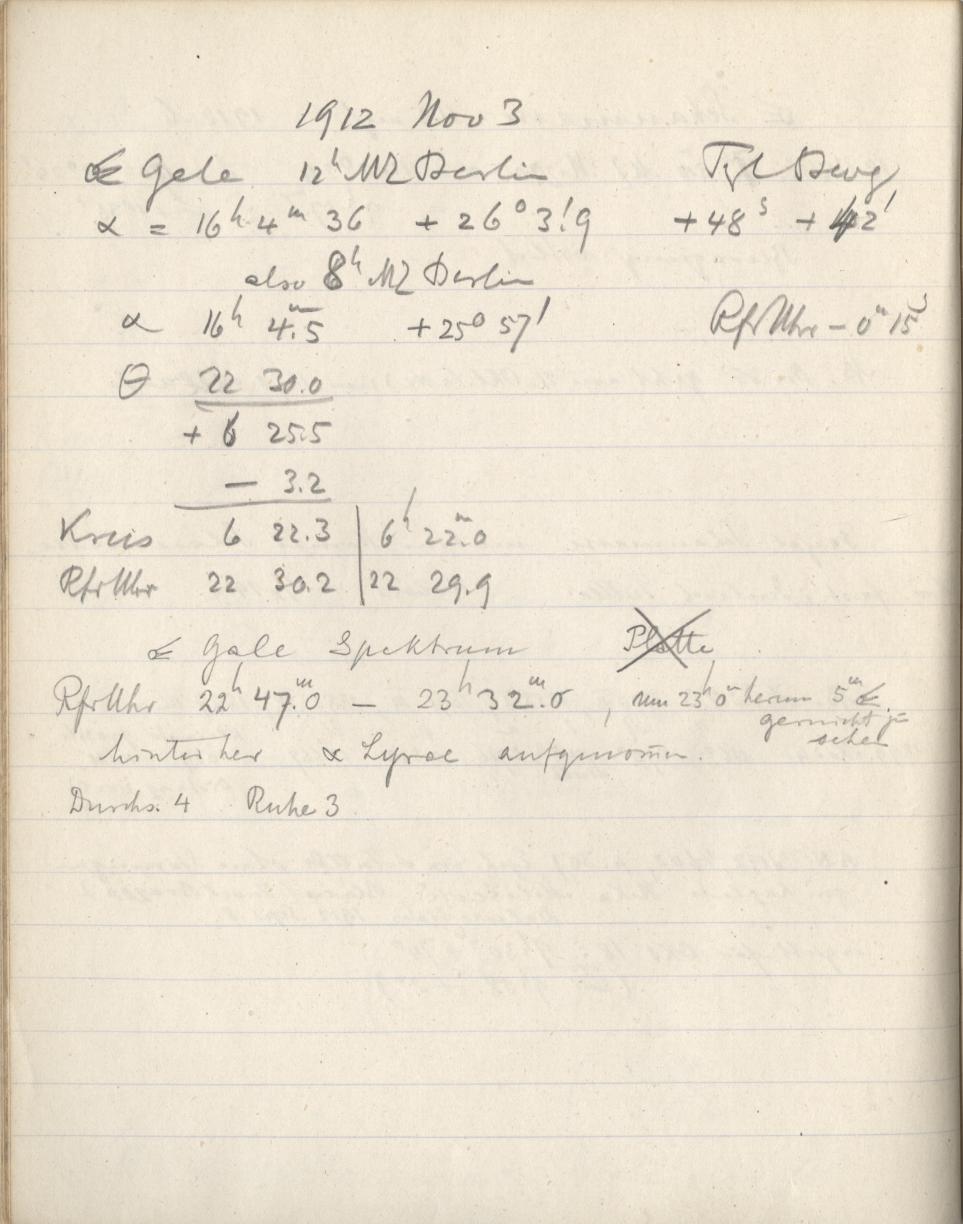 1912 Nov 3
☄ Gale 12ʰ MZ Berlin Tgl Bewg
α = 16ʰ 4ᵐ 36 + 26° 3!9 +48ˢ + 42'
also 8ʰ MZ Berlin
α 16ʰ 4ᵐ.5 +25° 57' RfrUhr – 0ᵐ 15ˢ
Θ 22 30.0
+ 6 25.5
– 3.2
Kreis 6 22.3 | 6ʰ 22ᵐ.0
RfrUhr 22 30.2 | 22 29.9
☄ Gale Spektrum Platte
RfrUhr 22ʰ 47ᵐ.0 – 23ʰ 32ᵐ.0, um 23ʰ 0ᵐ herum 5ᵐ ☄
garnicht zu
sehen
hinterher α Lyrae aufgenom̄en.
Durchs. 4 Ruhe 3